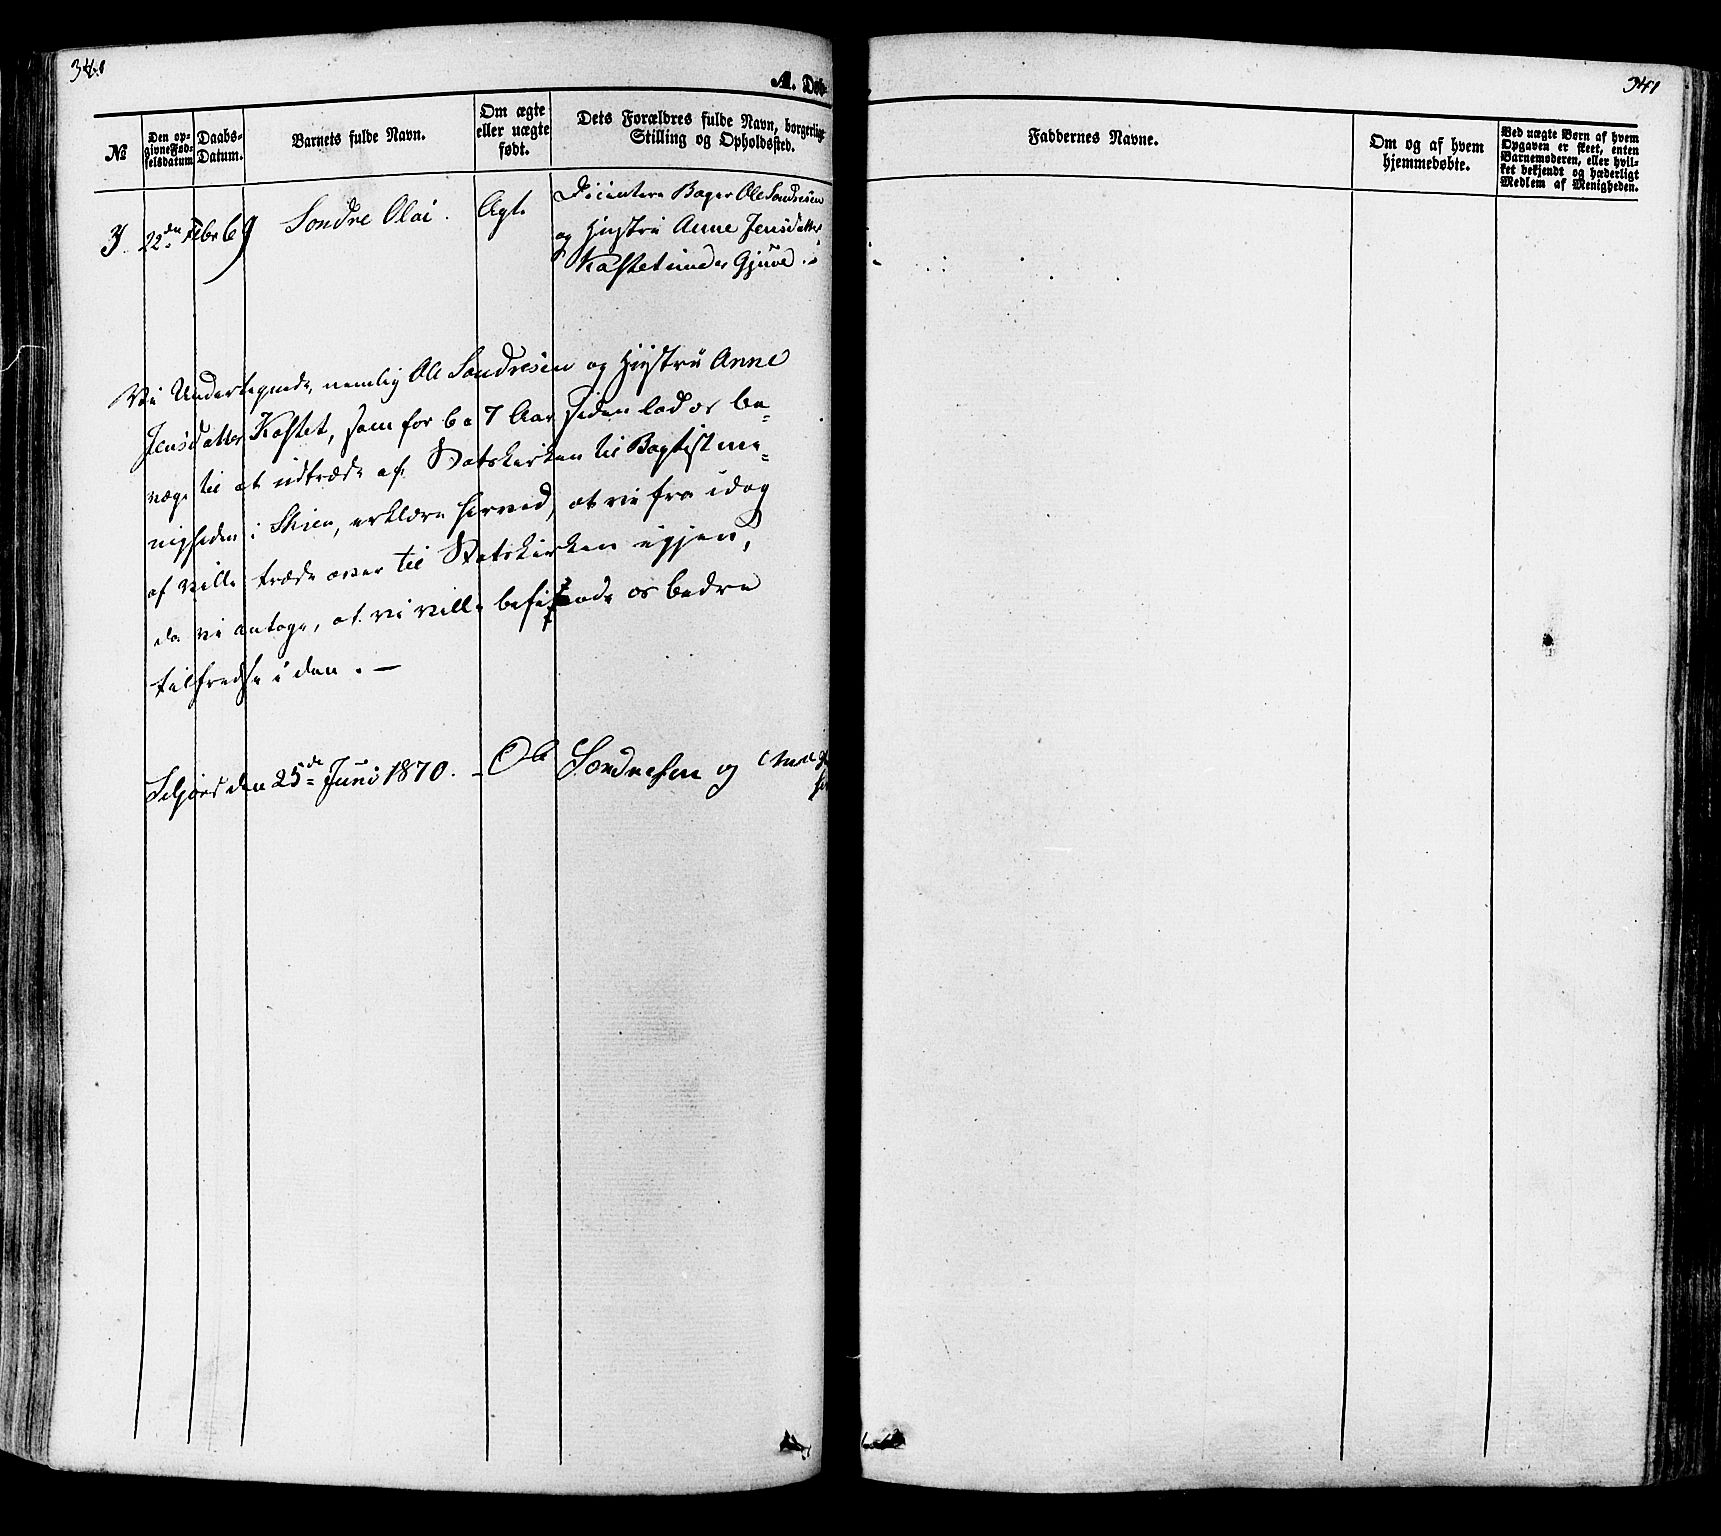 341
A. Døb-
№
Den op-
givne Fød-
selsdatum
Daabs-
Datum.
Barnets fulde Navn.
Om ægte
eller uægte
født.
Dets Forældres fulde Navn, borgerlige
Stilling og Opholdssted.
3
22de Febr 69
Sondre Olai.
Ægte
Dissenter Bager Ole Sondresen
og Hustru Anne Jensdatter
Kastet under Gjuve.
Vi Undertegnede, nemlig Ole Sondresen og Hustru Anne
Jensdatter Kastet, som for 6 a 7 Aar siden lod os be-
væge til at udtræde af Statskirken til Baptistme-
nigheden i Skien, erklære herved, at vi fra idag
af ville træde over til Statskirken igjen,
da vi antage, at vi ville befinde os bedre
tilfredse i den. —
Seljord den 25de Juni 1870. – Ole Sondresen og Anne
341
Faddernes Navne.
Om og af hvem
hjemmedøbte.
Ved uægte Børn af hvem
Opgaven er skeet, enten
Barnemoderen, eller hvil-
ket bekjendt og hæderligt
Medlem af Menigheden.